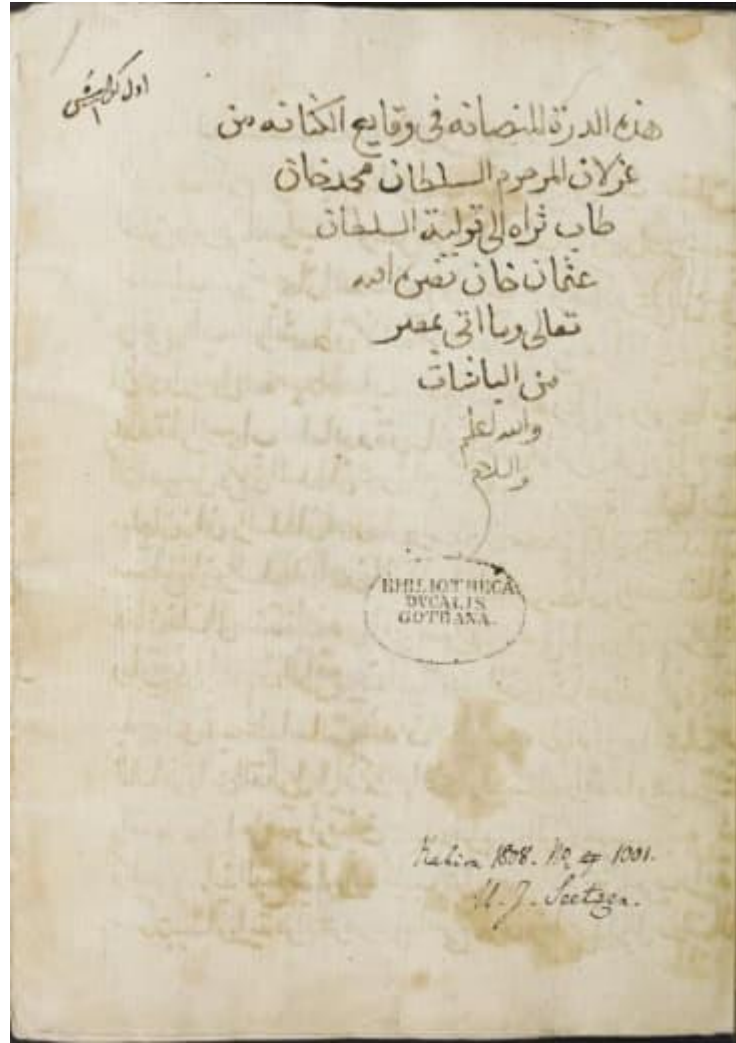 اول
هذه الدرة المنصانه فى وقايع الكنانه من
عزلان المرحوم السلطان محمد خان
طاب ثراه الى تولية السلطان
عثمان خان نصره الله
تعالى وما اتى بمصر
من الباشات
والله اعلم
والسلام
BIBLIOTHECA
DVCALIS
GOTHANA.
Kahira 1808. No 1001.
U. J. Seetzen.